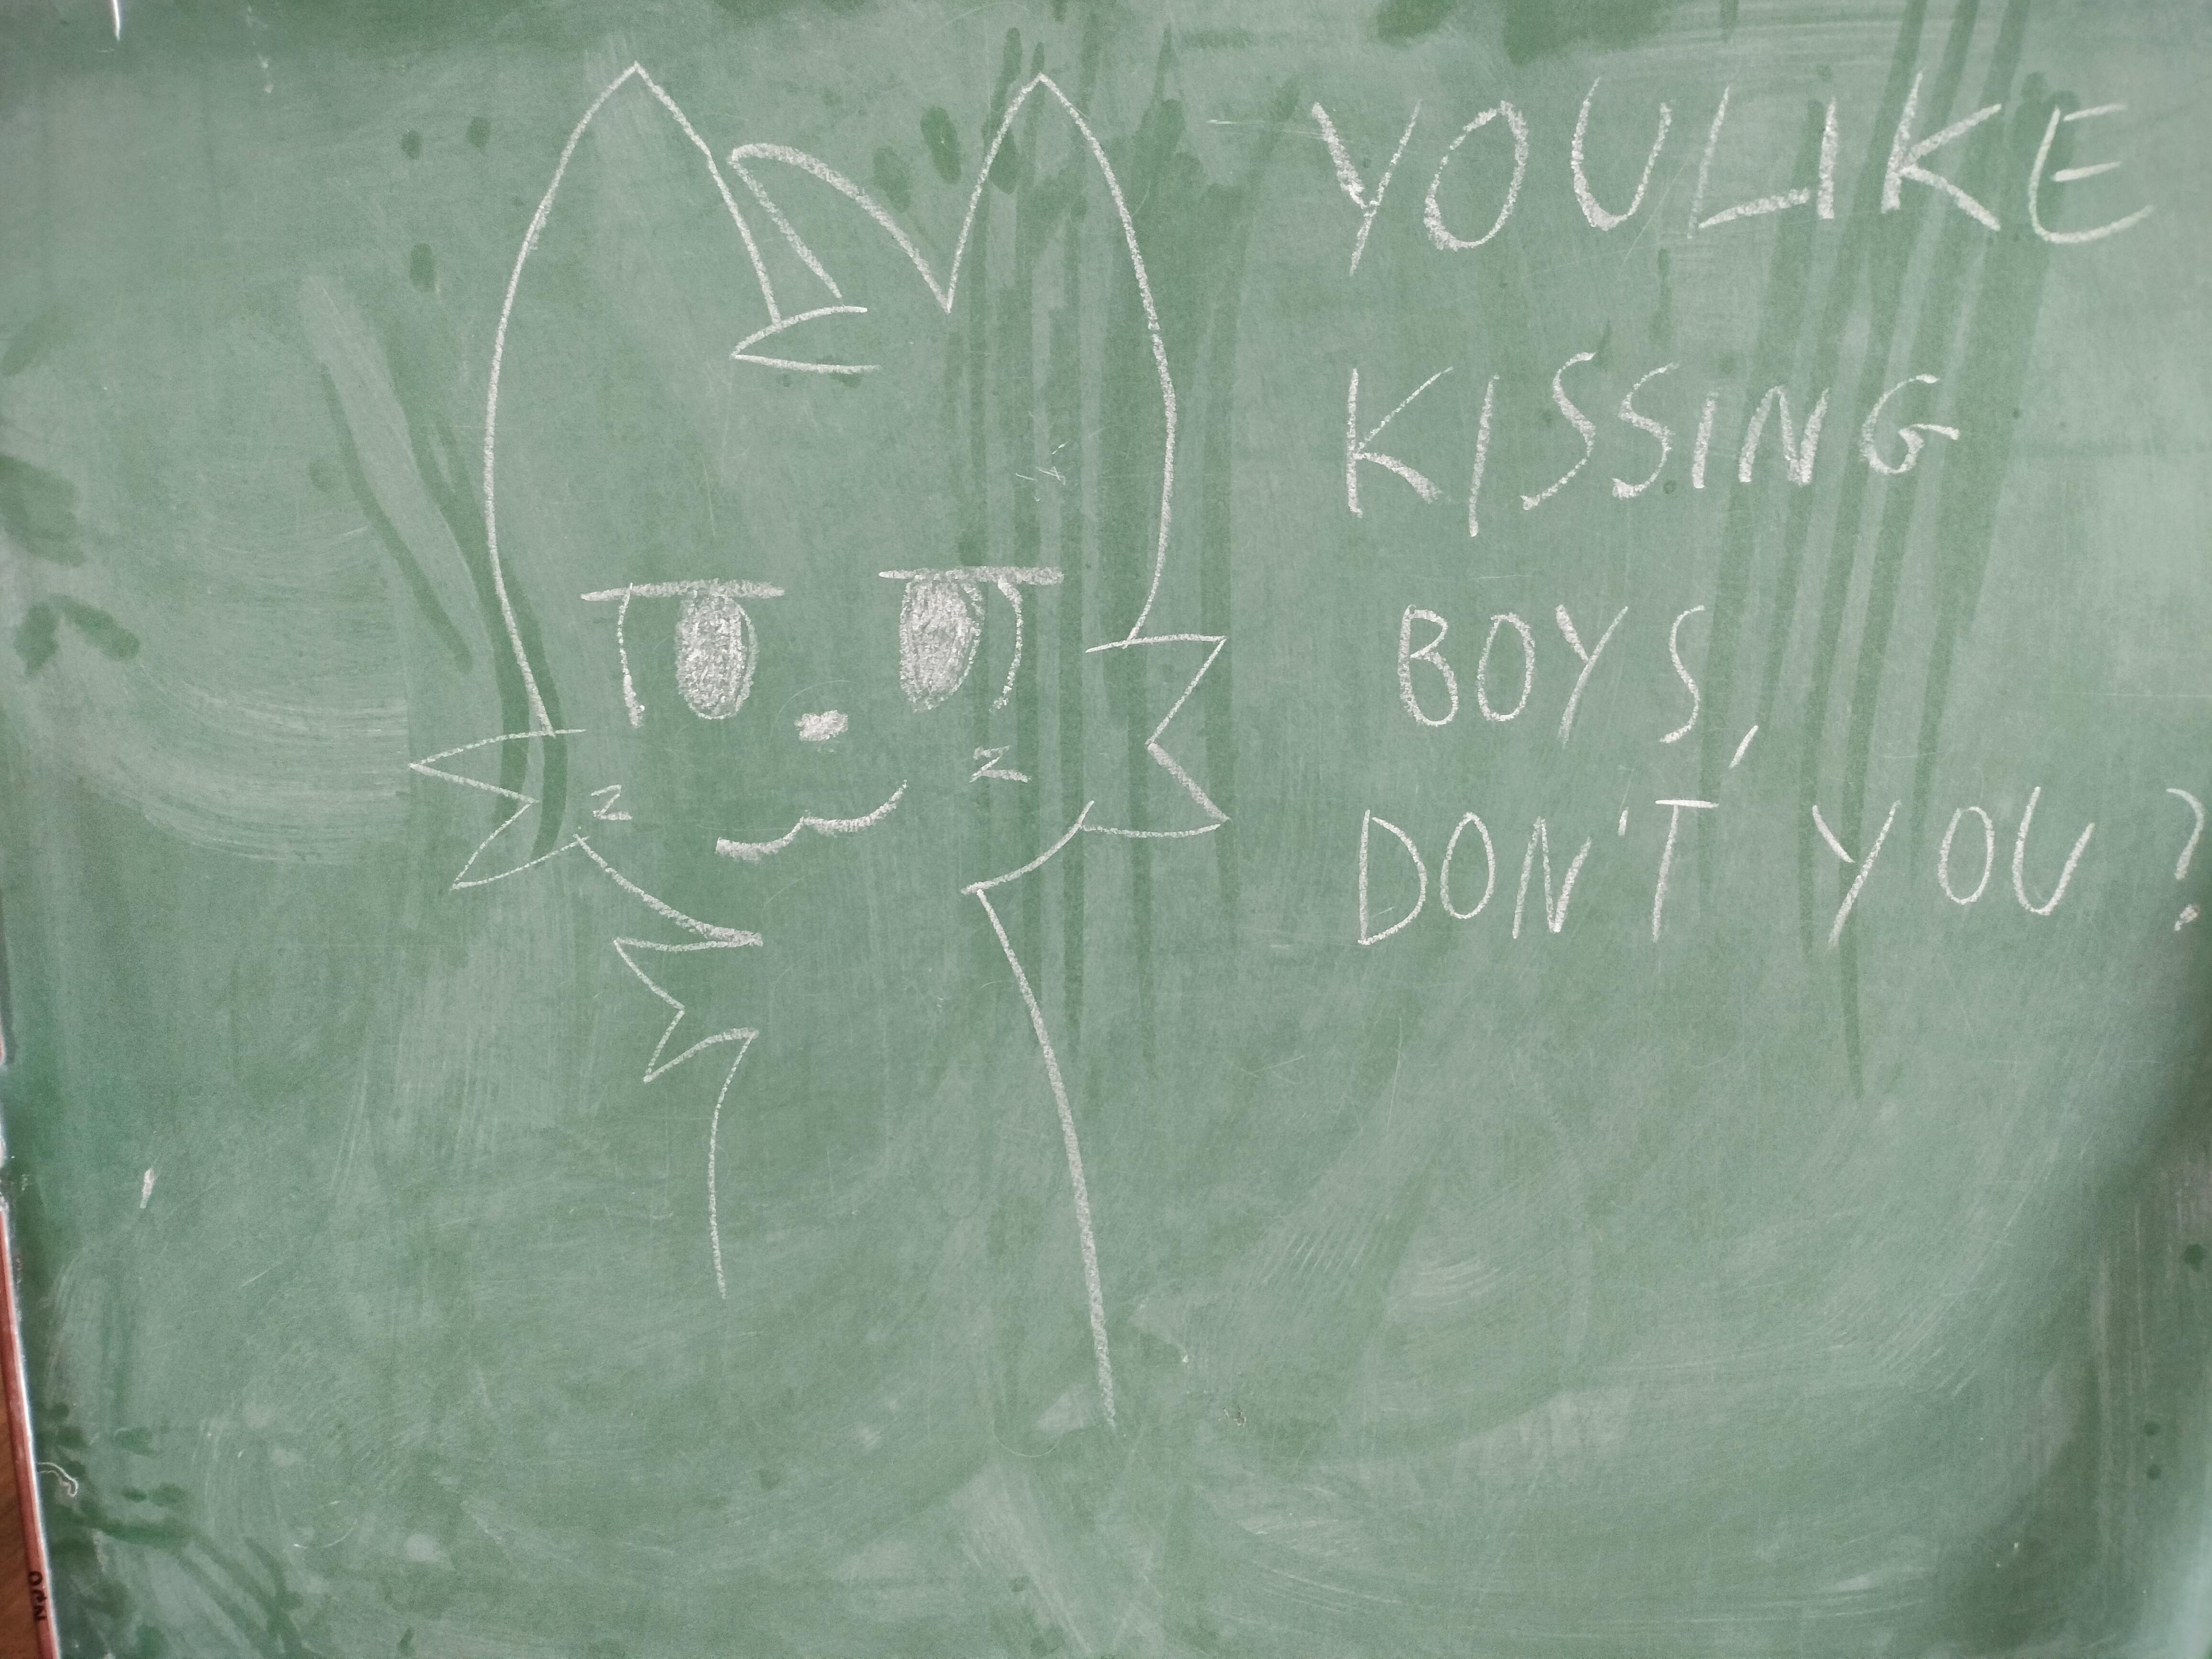 YOU LIKE
KISSING
BOYS,
DON'T YOU?